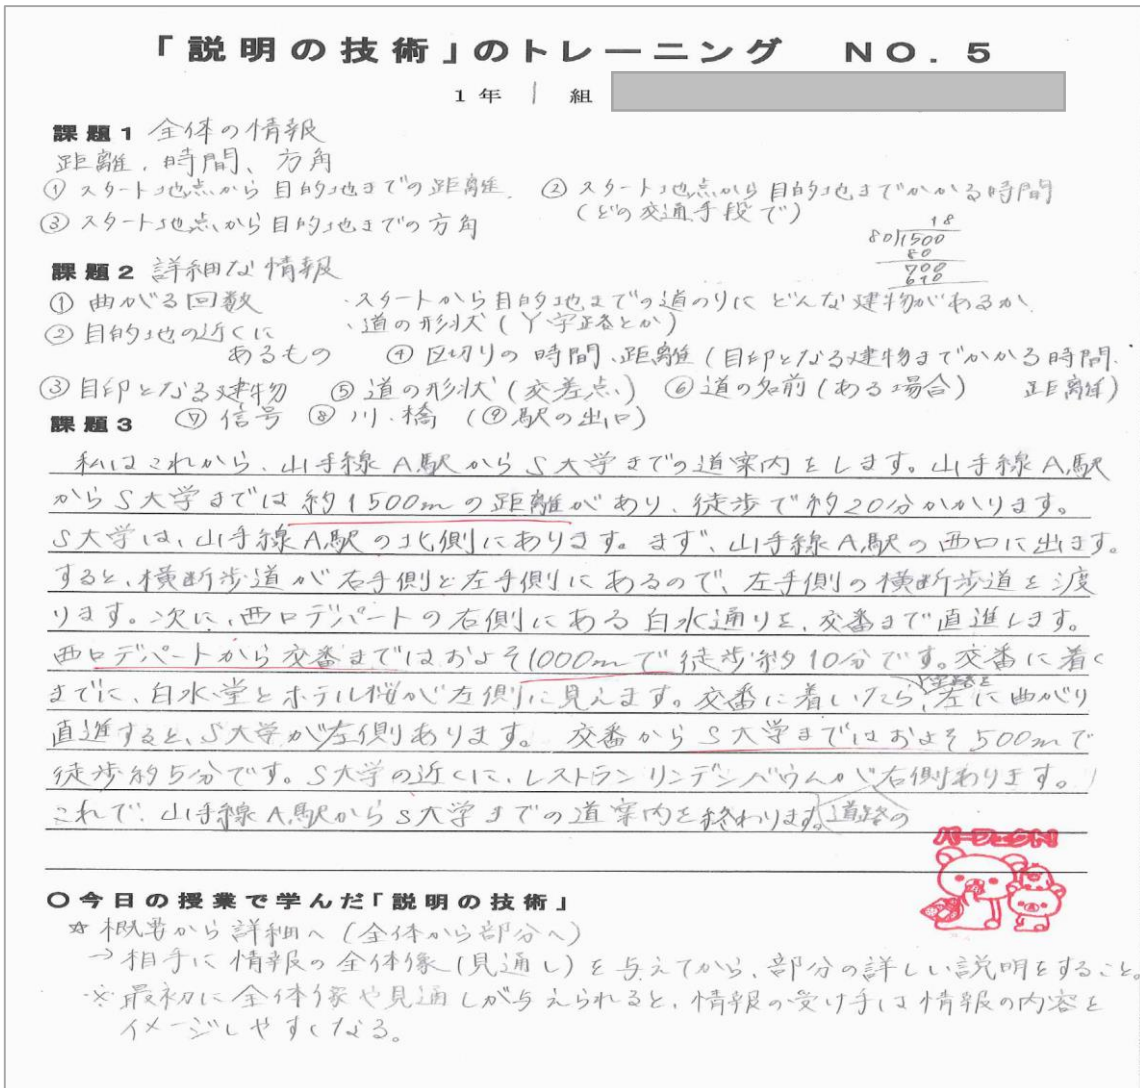 「説明の技術」のトレーニング NO.5
1年 1 組
課題1 全体の情報
距離、時間、方角
① スタート地点から目的地までの距離 ② スタート地点から目的地までかかる時間
(どの交通手段で)
③ スタート地点から目的地までの方角
18
80)1500
80
700
640
課題2 詳細な情報
① 曲がる回数 ・スタートから目的地までの道のりにどんな建物があるか
② 目的地の近くに ・道の形状(Y字路とか)
あるもの ④ 区切りの時間、距離(目印となる建物までかかる時間、
③ 目印となる建物 ⑤ 道の形状(交差点) ⑥ 道の名前(ある場合) 距離)
課題3 ⑦ 信号 ⑧ 川・橋 (⑨ 駅の出口)
私はこれから、山手線A駅からS大学までの道案内をします。山手線A駅
からS大学までは約1500mの距離があり、徒歩で約20分かかります。
S大学は、山手線A駅の北側にあります。まず、山手線A駅の西口に出ます。
すると、横断歩道が右手側と左手側にあるので、左手側の横断歩道を渡
ります。次に、西口デパートの右側にある白水通りを、交番まで直進します。
西口デパートから交番まではおよそ1000mで徒歩約10分です。交番に着く
Y字路を
までに、白水堂とホテル桜が左側に見えます。交番に着いたら、左に曲がり
直進すると、S大学が左側あります。交番からS大学まではおよそ500mで
徒歩約5分です。S大学の近くに、レストランリンデンバウムが右側あります。
これで、山手線A駅からS大学までの道案内を終わります。道路の
パーフェクト!
○今日の授業で学んだ「説明の技術」
☆概要から詳細へ(全体から部分へ)
→相手に情報の全体像(見通し)を与えてから、部分の詳しい説明をすること。
※最初に全体像や見通しが与えられると、情報の受け手は情報の内容を
イメージしやすくなる。